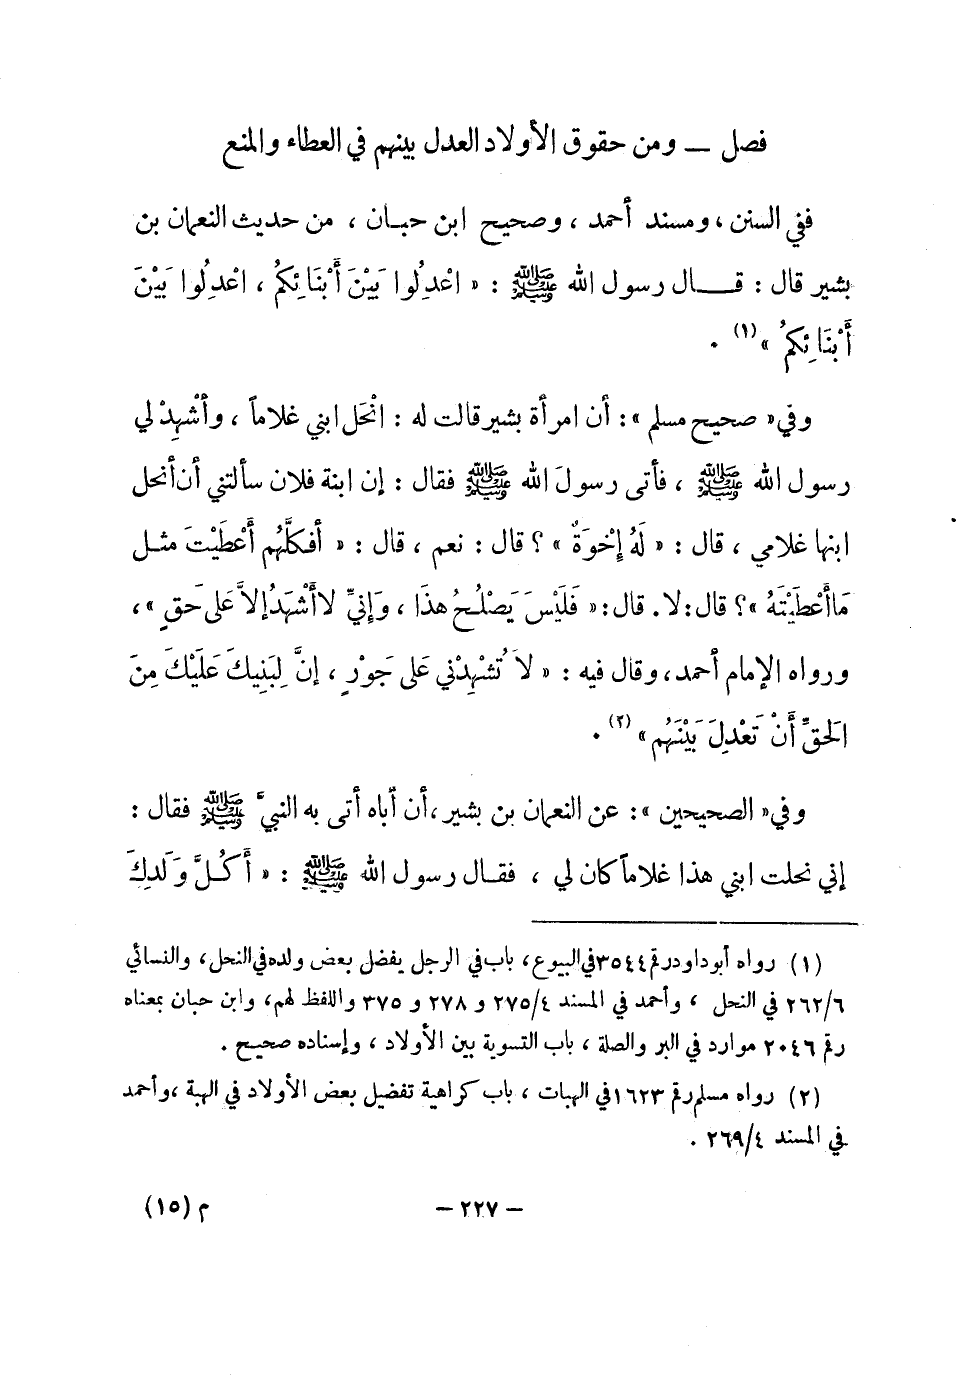 فصل — ومن حقوق الأولاد العدل بينهم في العطاء والمنع
ففي السنن ، ومسند أحمد ، وصحيح ابن حبان ، من حديث النعمان بن
بشير قال : قـــال رسول الله ﷺ : « اعْدِلُوا بَيْنَ أَبْنَائِكُمُ ، اعْدِلُوا بَيْنَ
أَبْنَائِكُمُ »(١) .
وفي « صحيح مسلم » : أن امرأة بشير قالت له : انْحَل ابني غلاماً ، وأَشْهِدْ لي
رسول الله ﷺ ، فأتى رسولَ الله ﷺ فقال : إن ابنة فلان سألتني أن أنحل
ابنها غلامي ، قال : « لَهُ إِخْوَةٌ » ؟ قال : نعم ، قال : « أَفكلَّهُم أَعْطَيْتَ مثــل
مَا أَعْطَيْتَهُ » ؟ قال : لا . قال : « فَلَيْسَ يَصْلُـحُ هذَا ، وَإِنيِّ لا أَشْهَدُ إلاَّ عَلى حَقٍ » ،
ورواه الإمام أحمد ، وقال فيه : « لاَ تُشْهِدْني عَلى جَوْرٍ ، إنَّ لِبَنِيكَ عَلَيْكَ مِنَ
الَحقِّ أَنْ تَعْدِلَ بَيْنَهُم »(٢) .
وفي « الصحيحين » : عن النعمان بن بشير ، أن أباه أتى به النبيَّ ﷺ فقال :
إني نحلت ابني هذا غلاماً كان لي ، فقـال رسول الله ﷺ : « أَكُـلَّ وَلَدِكَ
(١) رواه أبو داود رقم ٣٥٤٤ في البيوع ، باب في الرجل يفضل بعض ولده في النحل ، والنسائي
٢٦٢/٦ في النحل ، وأحمد في المسند ٢٧٥/٤ و ٢٧٨ و ٣٧٥ واللفظ لهم ، وابن حبان بمعناه
رقم ٢٠٤٦ موارد في البر والصلة ، باب التسوية بين الأولاد ، وإسناده صحيح .
(٢) رواه مسلم رقم ١٦٢٣ في الهبات ، باب كراهية تفضيل بعض الأولاد في الهبة ، وأحمد
في المسند ٢٦٩/٤ .
— ٢٢٧ — م (١٥)